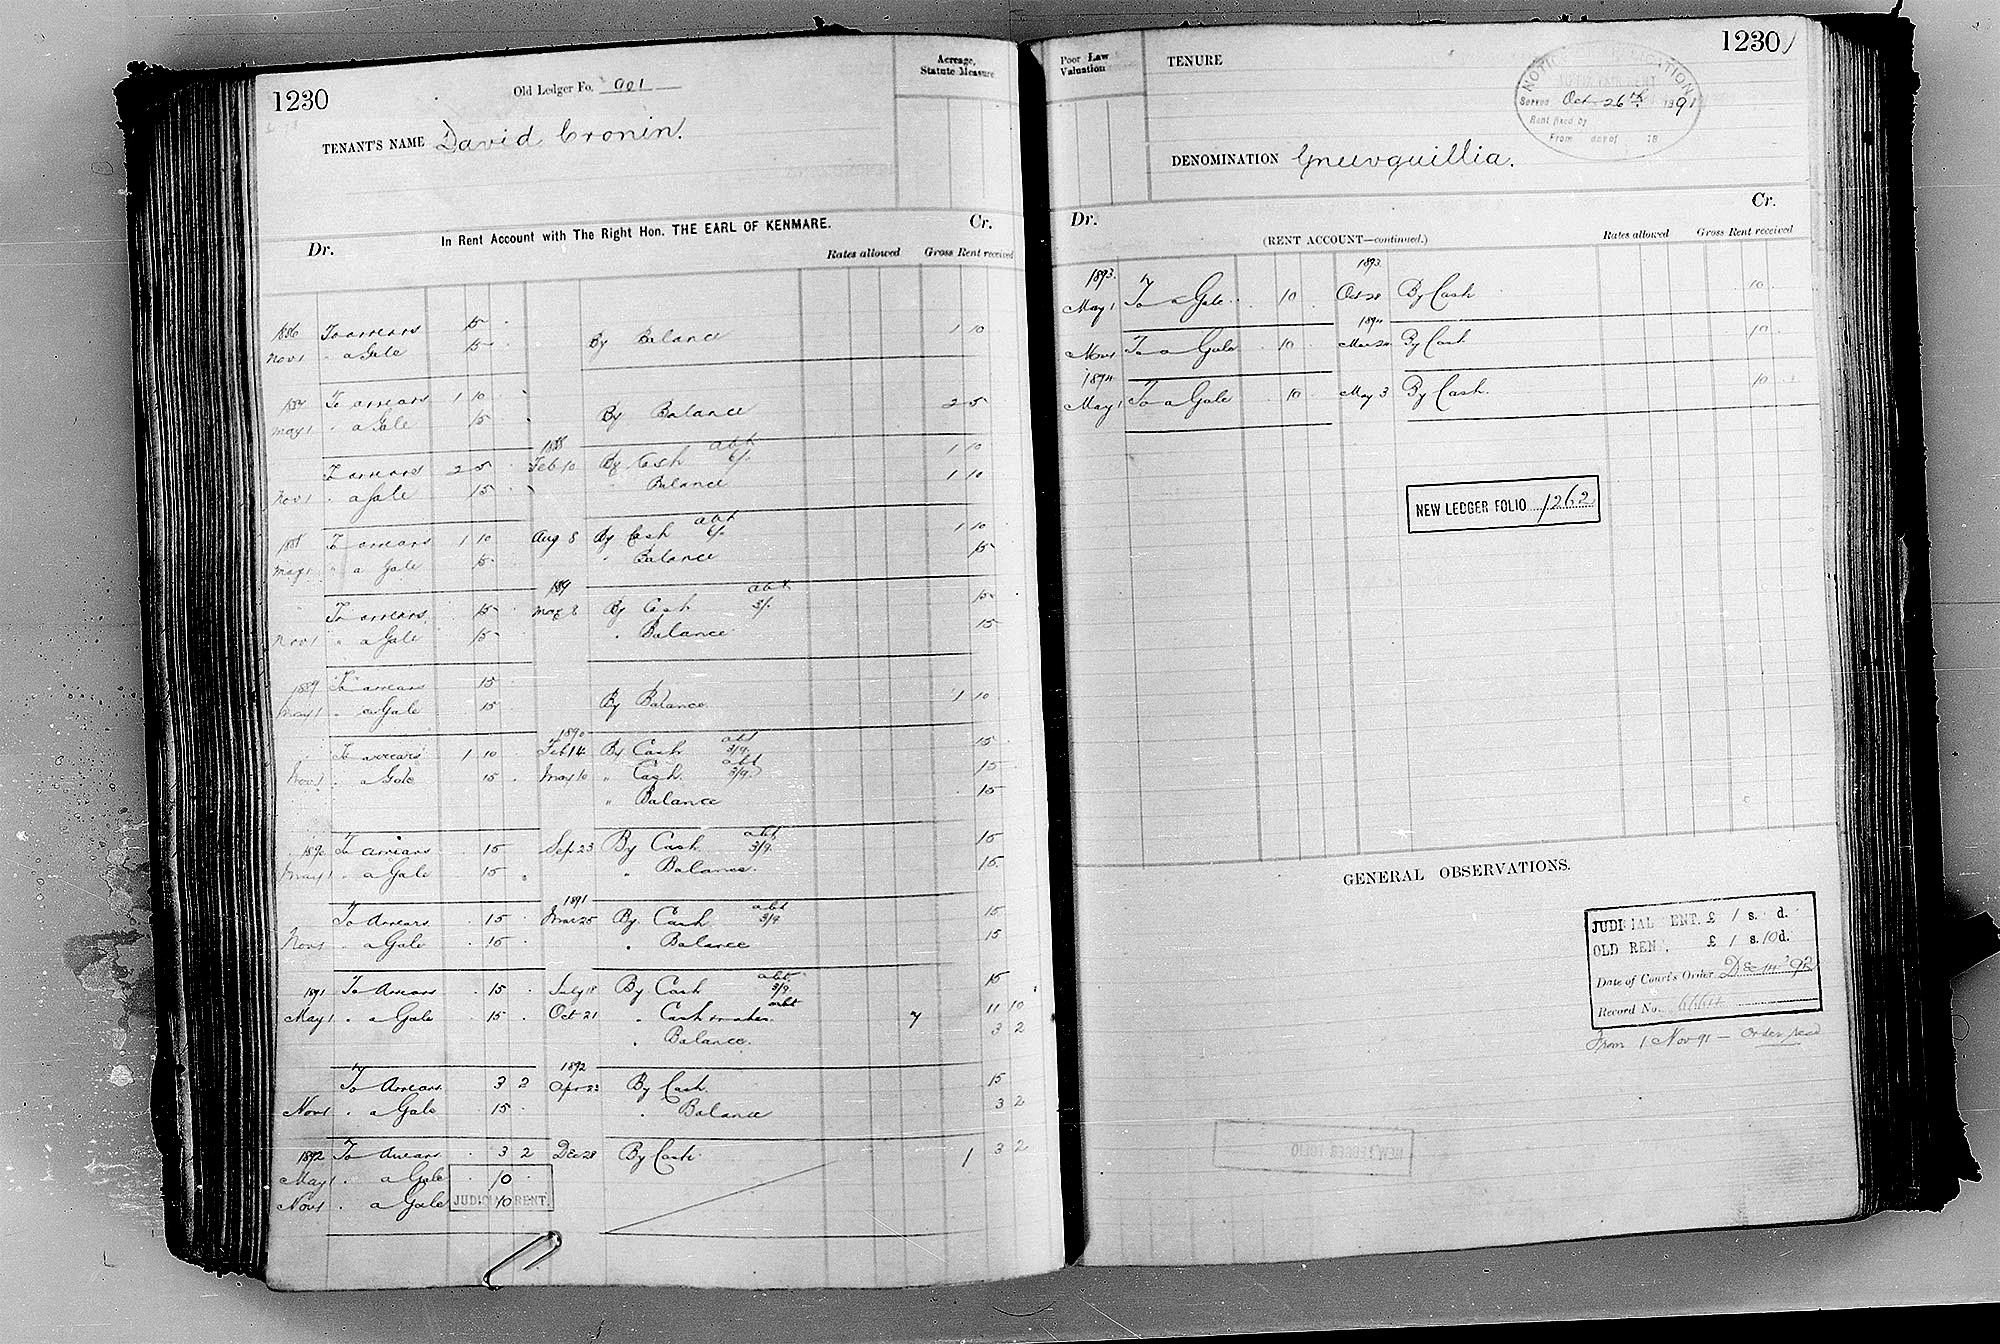 1230
Old Ledger Fo. 901
TENANT'S NAME David Cronin.
Acreage, Statute Measure
In Rent Account with The Right Hon. THE EARL OF KENMARE.
Dr. Cr.
Rates allowed Gross Rent received
1886 To arrears 15
Nov 1 " a Gale 15 By Balance 1 10
1887 To arrears 1 10
May 1 " a Gale 15 By Balance 2 5
1888 abt
To arrears 2 5 Feb 10 By Cash 6/. 1 10
Nov 1 " a Gale 15 " Balance 1 10
abt
1888 To arrears 1 10 Aug 8 By Cash 6/. 1 10
May 1 " a Gale 15 " Balance 15
189 abt
To arrears 15 May 8 By Cash 3/. 15
Nov 1 " a Gale 15 " Balance 15
1889 To arrears 15
May 1 " a Gale 15 By Balance 1 10
1890 abt
To arrears 1 10 Feb 14 By Cash 3/9. 15
abt
Nov 1 " a Gale 15 May 10 " Cash 3/9. 15
" Balance 15
abt
1890 To arrears 15 Sep 23 By Cash 3/9. 15
May 1 " a Gale 15 " Balance. 15
1891 abt
To Arrears 15 Mar 25 By Cash 3/9. 15
Nov 1 " a Gale 15 " Balance 15
abt
1891 To Arrears 15 July 18 By Cash 3/9. 15
abt
May 1 " a Gale 15 Oct 21 " Cash 7 11 10
" Balance. 3 2
1892
To Arrears 3 2 Apr 23 By Cash 15
Nov 1 " a Gale 15 " Balance 3 2
1892 To Arrears 3 2 Dec 28 By Cash 1 3 2
May 1 " a Gale 10
Nov 1 " a Gale 10
JUDICIAL RENT.
1230
Poor Law Valuation
TENURE
NOTICE
Served Oct 26th 1891
Rent fixed by
From day of 18
DENOMINATION Gneevguillia.
Dr. Cr.
(RENT ACCOUNT—continued.)
Rates allowed Gross Rent received
1893. 1893.
May 1 To a Gale 10 Oct 28 By Cash 10
1894
Nov 1 To a Gale 10 Mar 20 By Cash 10
1894
May 1 To a Gale 10 May 3 By Cash. 10
NEW LEDGER FOLIO 1262
GENERAL OBSERVATIONS.
JUDICIAL RENT. £ 1 s. d.
OLD RENT, £ 1 s. 10 d.
Date of Court's Order Dec 14 '92
Record No. 6664
From 1 Nov 91 — Order recd
NEW LEDGER FOLIO